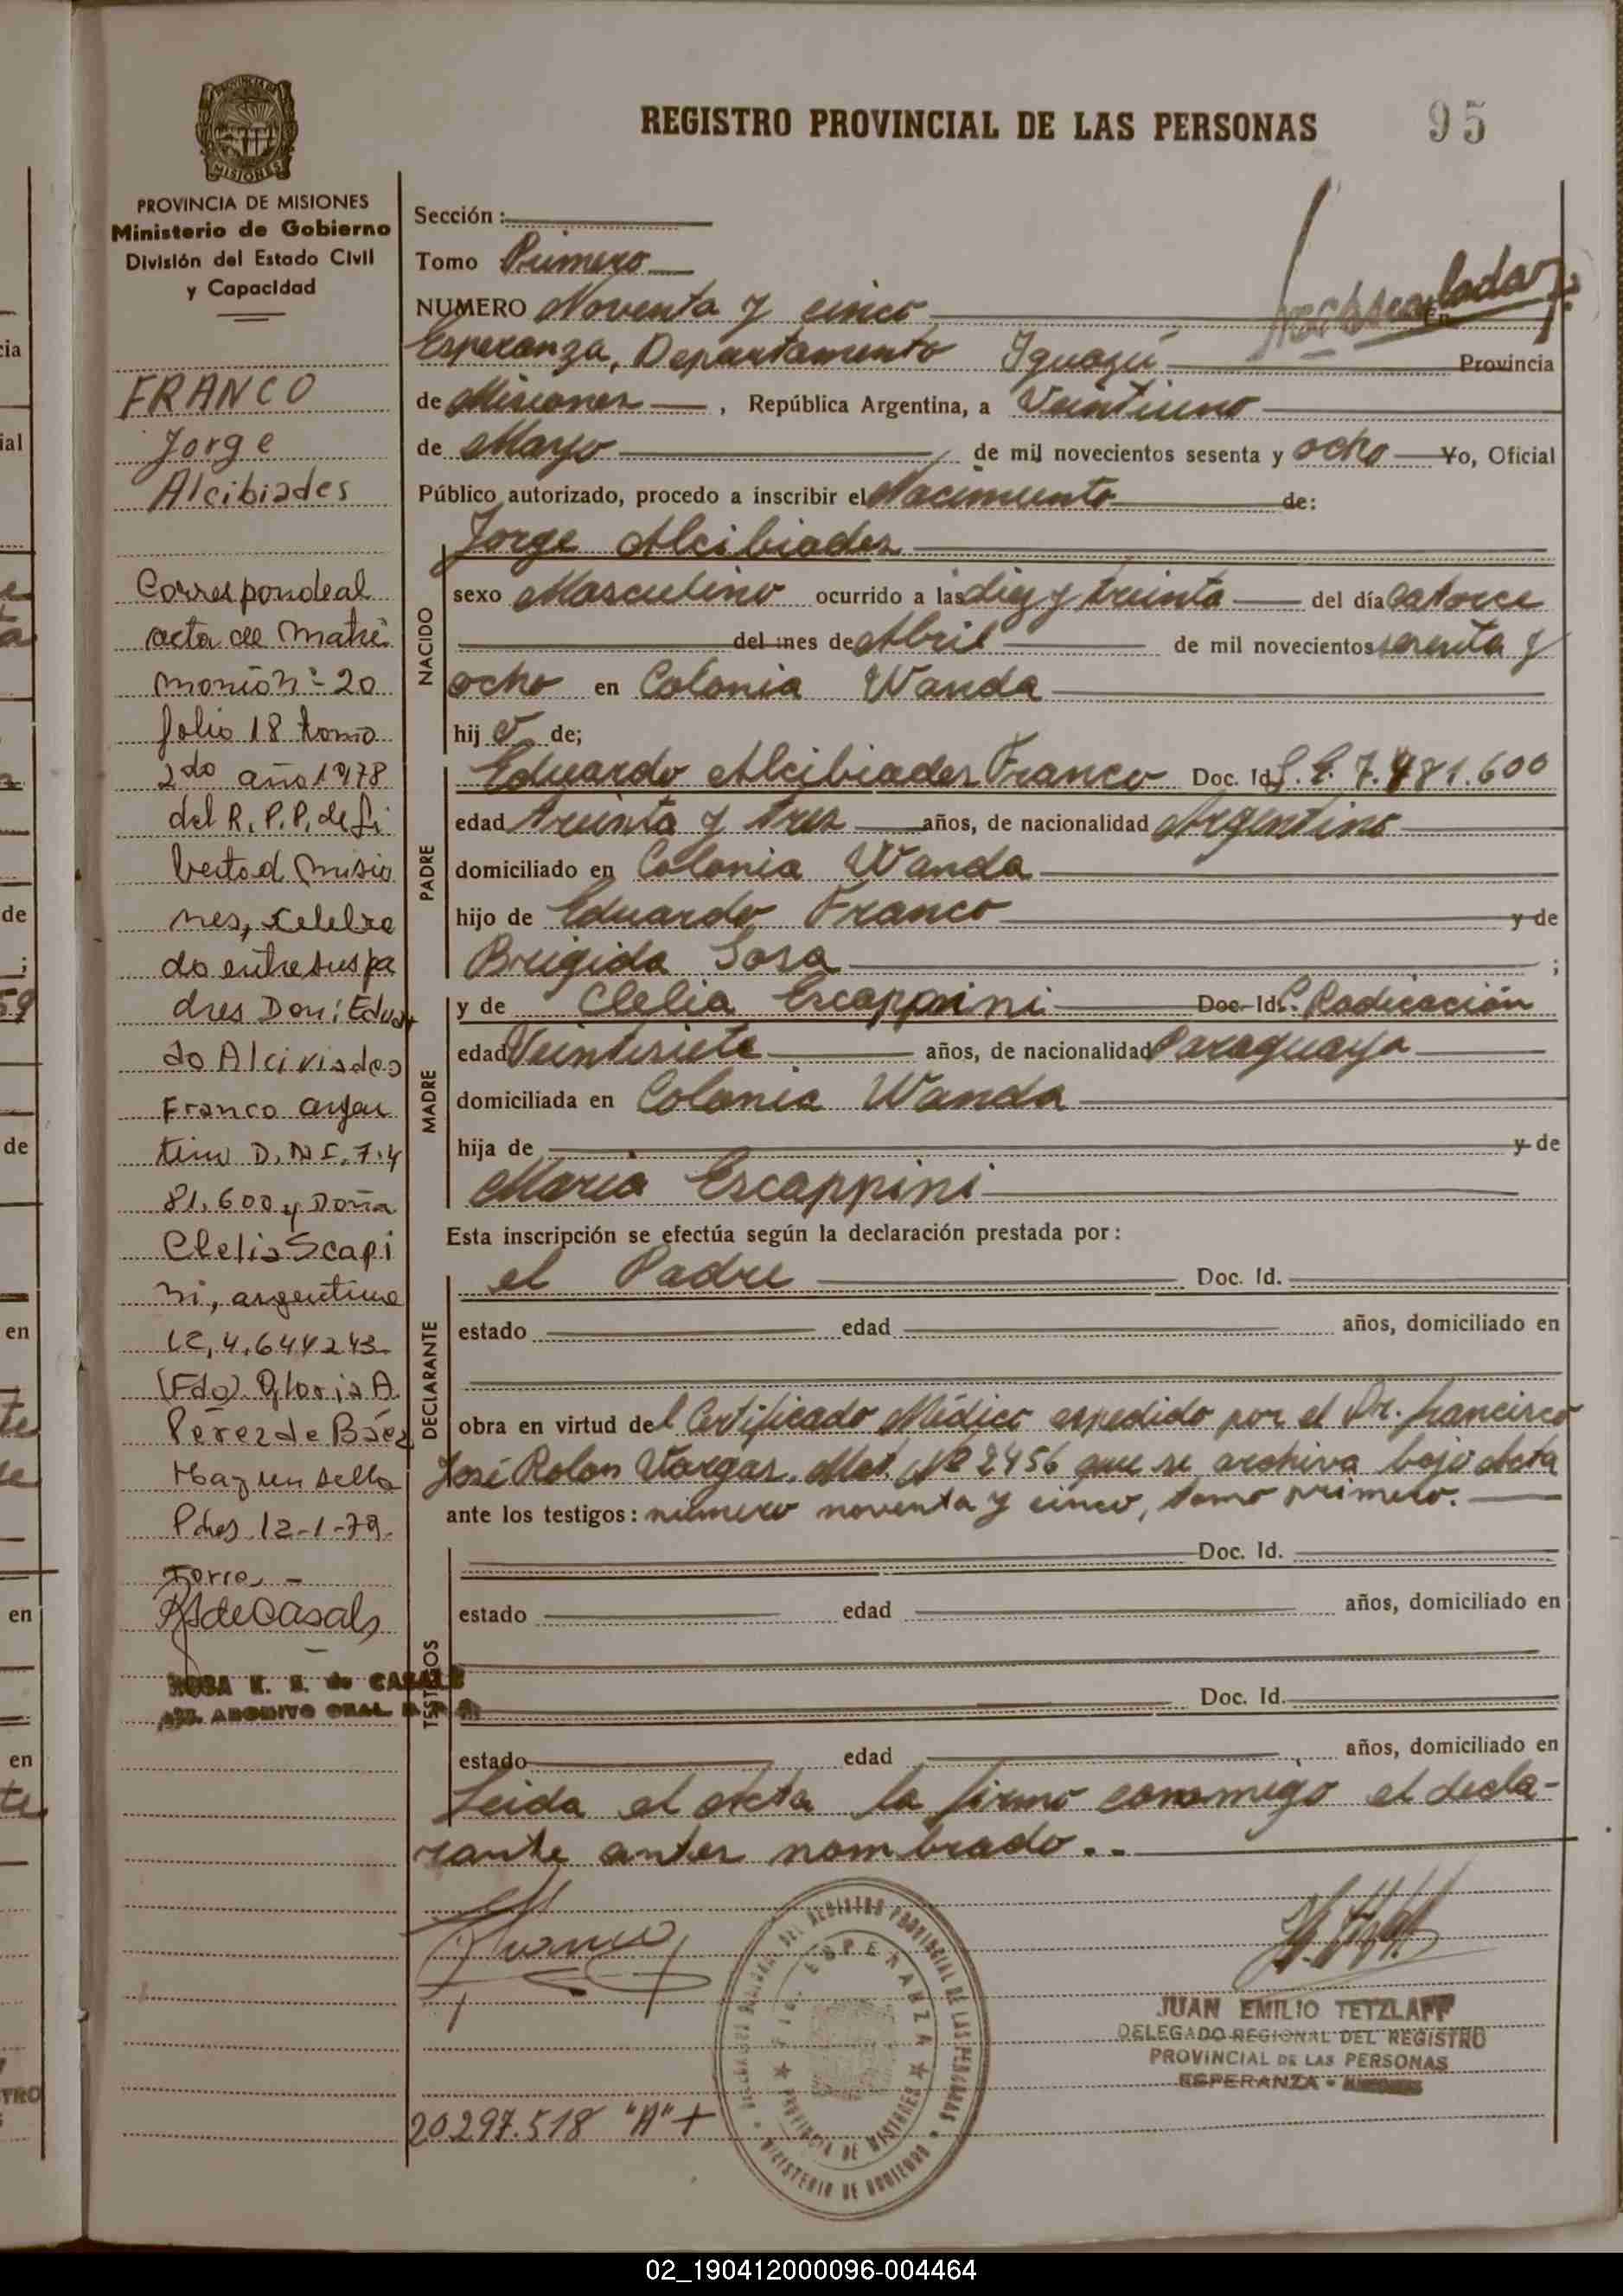 REGISTRO PROVINCIAL DE LAS PERSONAS
95
PROVINCIA DE
MISIONES
PROVINCIA DE MISIONES
Ministerio de Gobierno
División del Estado Civil
y Capacidad
FRANCO
Jorge
Alcibiades
Corresponde al
acta de matri
monio nº 20
folio 18 tomo
2do año 1978
del R.P.P. de Li
bertad Misio
nes, celebra
do entre sus pa
dres Don: Eduar
do Alciviades
Franco argen
tino D.N.I. 7.4
81.600 y Doña
Clelia Scapi
ni, argentina
LC, 4.644243
(Fdo) Gloria A.
Pérez de Báez
Hay un sello
Pdas 12-1-79.
Torre, -
RdeCasals
ROSA de CASALS
ARCHIVO GRAL.
Sección :
Tomo Primero
NUMERO Noventa y cinco En
Esperanza, Departamento Iguazú Provincia
de Misiones , República Argentina, a Veintiuno
de Mayo de mil novecientos sesenta y ocho Yo, Oficial
Público autorizado, procedo a inscribir el Nacimiento de:
Jorge Alcibiades
NACIDO
sexo Masculino ocurrido a las diez y treinta del día catorce
del mes de Abril de mil novecientos sesenta y
ocho en Colonia Wanda
hij o de;
PADRE
Eduardo Alcibiades Franco Doc. Id. 7.481.600
edad treinta y tres años, de nacionalidad Argentino
domiciliado en Colonia Wanda
hijo de Eduardo Franco y de
Brigida Sosa ;
MADRE
y de Clelia Escappini Doc. Id. Radicación
edad Veintisiete años, de nacionalidad Paraguaya
domiciliada en Colonia Wanda
hija de y de
Maria Escappini
Esta inscripción se efectúa según la declaración prestada por :
DECLARANTE
el Padre Doc. Id.
estado edad años, domiciliado en
obra en virtud del Certificado Médico expedido por el Dr. Francisco
José Rolon Vargas, Mat. Nº 2456 que se archiva bajo Acta
ante los testigos : número noventa y cinco, tomo primero.
TESTIGOS
Doc. Id.
estado edad años, domiciliado en
Doc. Id.
estado edad años, domiciliado en
Leida el Acta la firmó conmigo el decla-
rante antes nombrado..
Franco
REGISTRO PROVINCIAL DE LAS PERSONAS
ESPERANZA
PROVINCIA DE MISIONES
MINISTERIO DE GOBIERNO
JUAN EMILIO TETZLAFF
DELEGADO REGIONAL DEL REGISTRO
PROVINCIAL DE LAS PERSONAS
ESPERANZA - MISIONES
20.297.518 "A" +
02_190412000096-004464